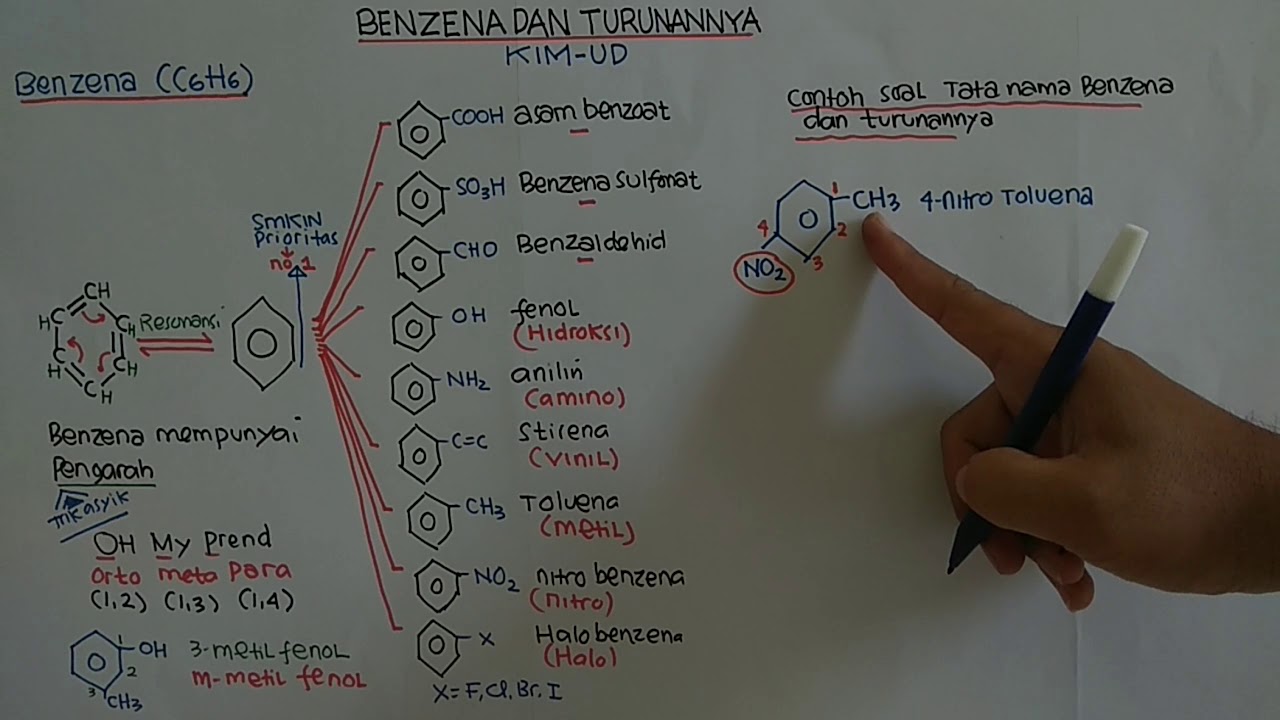 BENZENA DAN TURUNANNYA
KIM-UD
Benzena (C6H6)
SMKIN
Prioritas
no 1
CH
HC
CH
C
H
CH
C
H
Resonansi
Benzena mempunyai
Pengarah
mkasyik
OH My Prend
orto meta para
(1,2) (1,3) (1,4)
1
OH
2
3
CH3
3-metil fenol
m-metil fenol
COOH asam benzoat
SO3H Benzena Sulfonat
CHO Benzaldehid
OH fenol
(Hidroksi)
NH2 anilin
(amino)
C=C Stirena
(Vinil)
CH3 Toluena
(metil)
NO2 nitro benzena
(nitro)
X Halo benzena
(Halo)
X = F, Cl, Br, I
Contoh soal Tata nama Benzena
dan turunannya
1
CH3 4-nitro Toluena
4
2
3
NO2